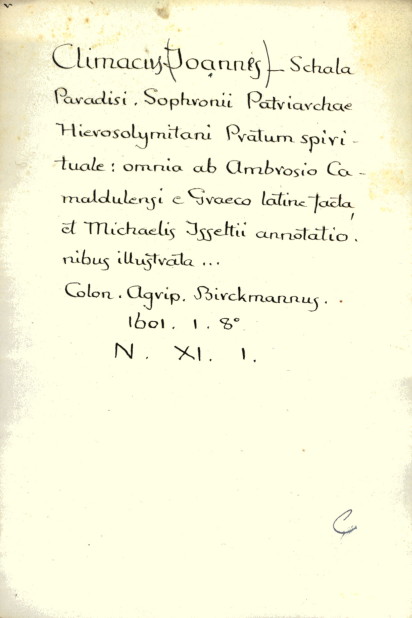 Climacus (Joannes) - Schala
Paradisi. Sophronii Patriarchae
Hierosolymitani Pratum spiri-
tuale: omnia ab Ambrosio Ca-
maldulensi e Graeco latine facta,
et Michaelis Isseltii annotatio.
nibus illustrata ...
Colon. Agrip. Birckmannus..
1601. 1. 8°
N. XI. 1.
C